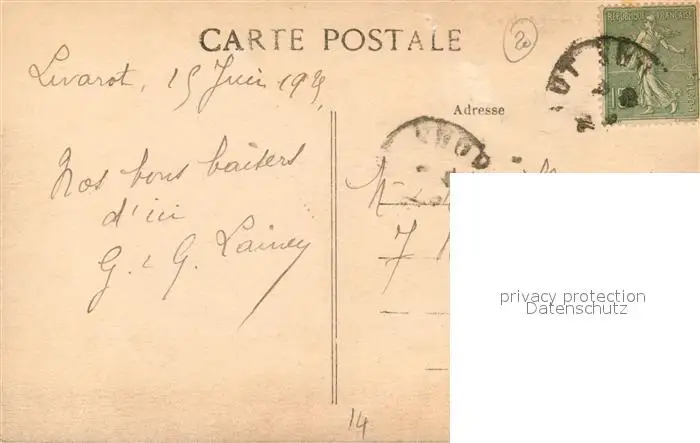 CARTE POSTALE
20
RÉPUBLIQUE FRANÇAISE
Livarot, 15 Juin
Adresse
Nos bons baisers
d'ici
G. & G. Lainey
7
privacy protection
Datenschutz
14